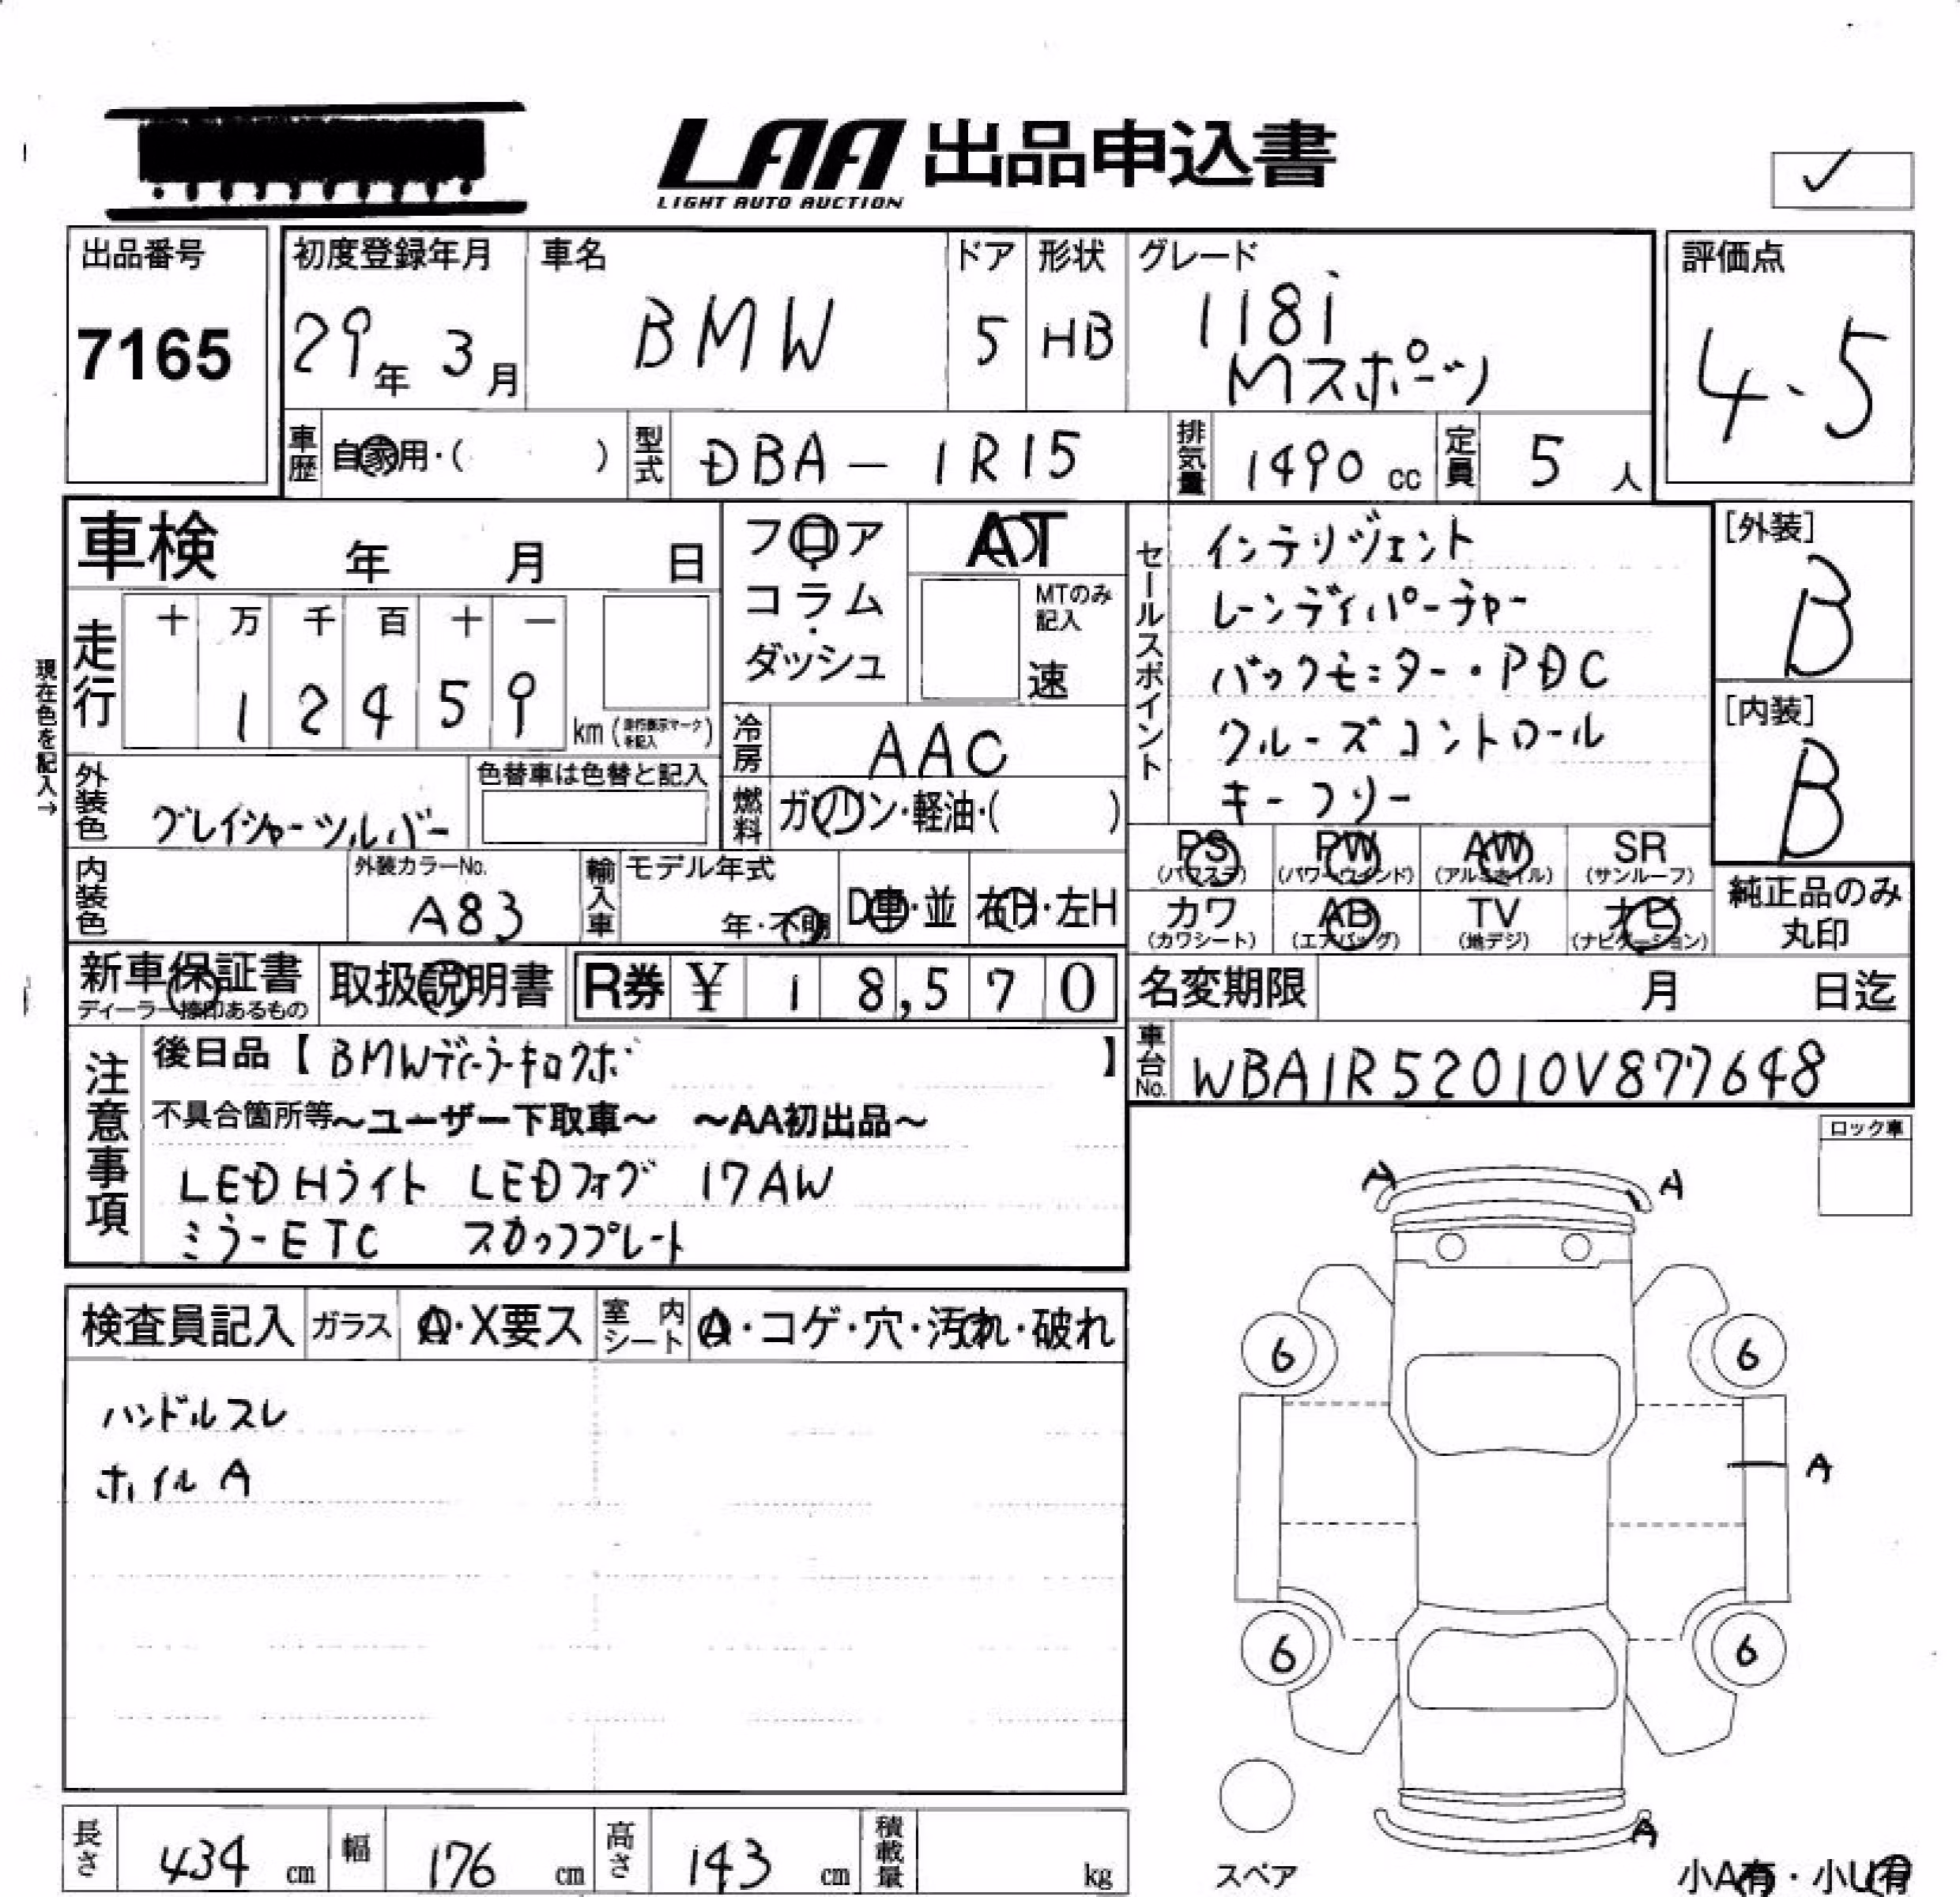 LAA 出品申込書
LIGHT AUTO AUCTION
✓
出品番号
7165
初度登録年月
29年 3月
車名
BMW
ドア
5
形状
HB
グレード
118i
Mスポーツ
評価点
4.5
車歴
自家用・( )
型式
DBA-1R15
排気量
1490 cc
定員
5 人
車検 年 月 日
走行
十 万 千 百 十 一
1 2 4 5 9
km(走行表示マークを記入)
現在色を記入→
フロア・コラム・ダッシュ
AT
MTのみ記入
速
冷房
AAC
燃料
ガソリン・軽油・( )
外装色
グレイシャーシルバー
色替車は色替と記入
内装色
外装カラーNo.
A83
輸入車
モデル年式
年・不明
D車・並
右H・左H
セールスポイント
インテリジェント
レーンディパーチャー
バックモニター・PDC
クルーズコントロール
キーフリー
[外装]
B
[内装]
B
PS PW AW SR
(パワステ) (パワーウインド) (アルミホイル) (サンルーフ)
カワ AB TV ナビ
(カワシート) (エアバッグ) (地デジ) (ナビゲーション)
純正品のみ
丸印
新車保証書
ディーラー捺印あるもの
取扱説明書
R券 ¥ 18,570
名変期限 月 日迄
車台No.
WBA1R52010V877648
注意事項
後日品【BMWディーラーキロクボ】
不具合箇所等～ユーザー下取車～ ～AA初出品～
LEDHライト LEDフォグ 17AW
ミラーETC スカッフプレート
ロック車
検査員記入
ガラス
A・X要ス
室内シート
A・コゲ・穴・汚れ・破れ
ハンドルスレ
ホイルA
A A
6 6
A
6 6
A
スペア
小A有・小U有
長さ
434 cm
幅
176 cm
高さ
143 cm
積載量
kg